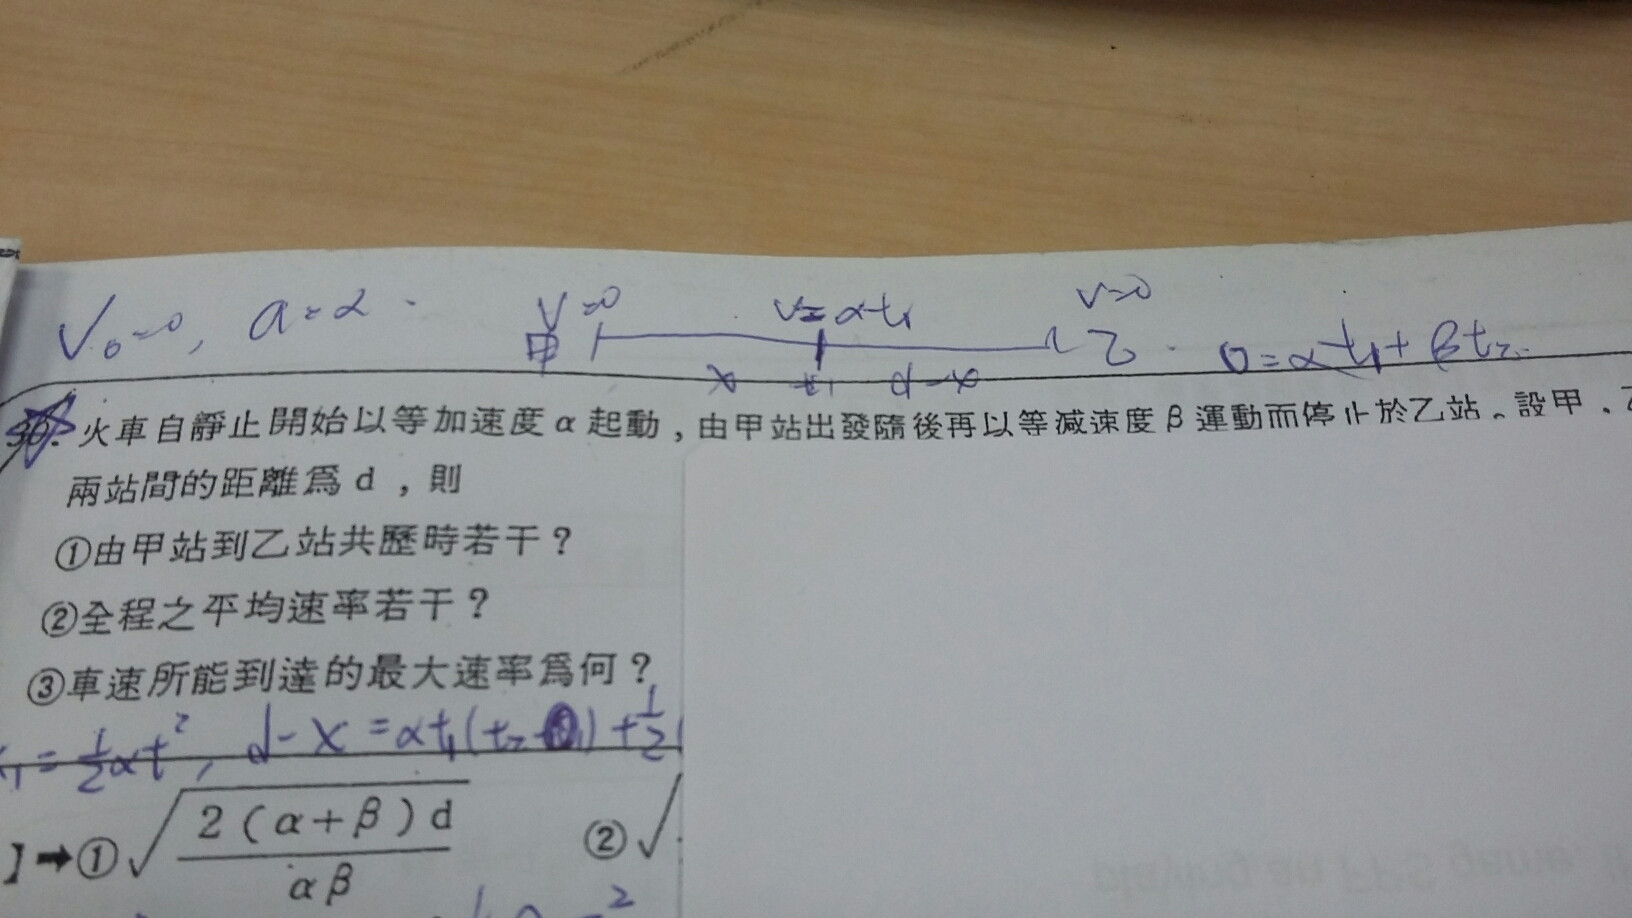 V₀=0, a=α
V=0 V=αt₁ V=0
甲 乙 0=αt₁+βt₂
x t₁ d-x
30. 火車自靜止開始以等加速度α起動，由甲站出發隨後再以等減速度β運動而停止於乙站。設甲、乙
兩站間的距離為d，則
①由甲站到乙站共歷時若干？
②全程之平均速率若干？
③車速所能到達的最大速率為何？
= 1/2 αt², d-x=αt₁(t₂ ) + 1/2
】➡①√(2(α+β)d / αβ) ②√